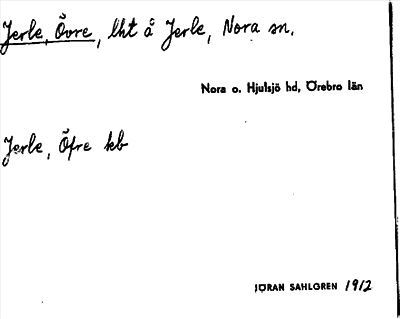 Jerle, Övre, lht å Jerle, Nora sn.
Nora o. Hjulsjö hd, Örebro län
Jerle, Öfre kb
JÖRAN SAHLGREN 1912